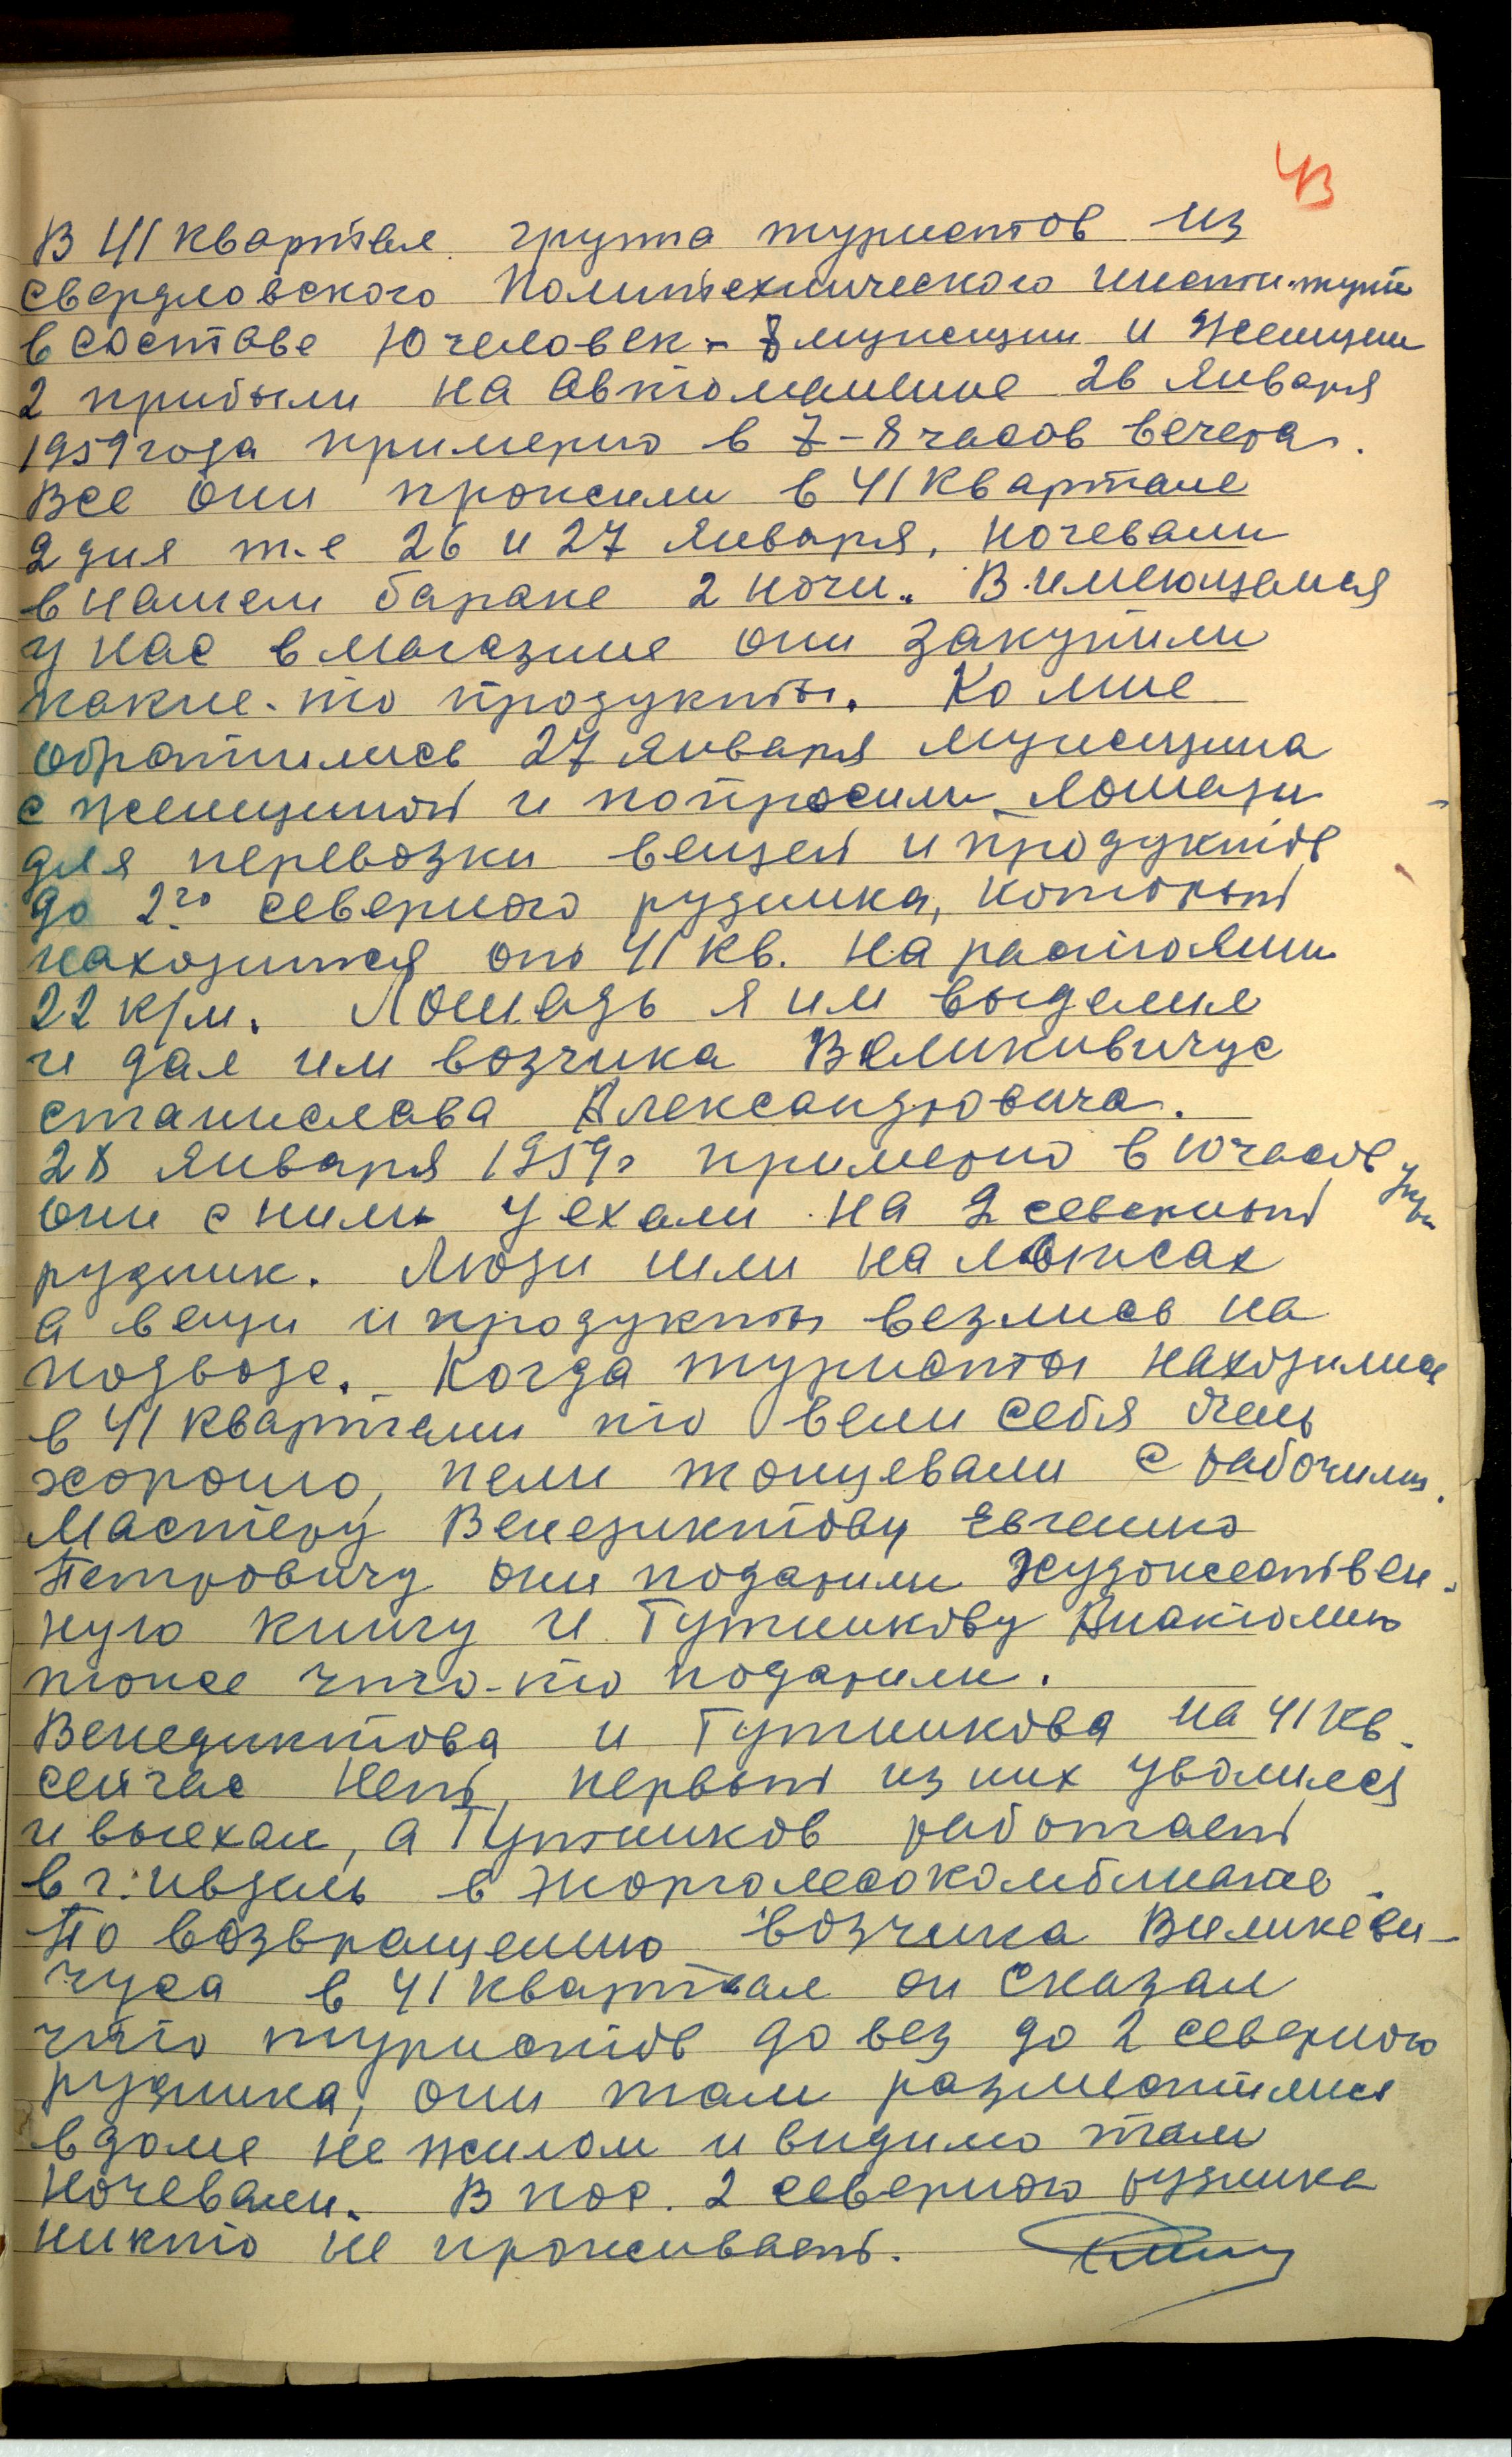 43
В 41 квартал группа туристов из
свердловского Политехнического института
в составе 10 человек - 8 мужщин и женщин
2 прибыли на автомашине 26 января
1959 года примерно в 7-8 часов вечера.
Все они прожили в 41 квартале
2 дня т.е 26 и 27 января, ночевали
в нашем бараке 2 ночи. В имеющемся
у нас в магазине они закупили
какие-то продукты. Ко мне
обратились 27 января мужщина
с женщиной и попросили лошади
для перевозки вещей и продуктов
до 2го северного рудника, который
находится от 41 кв. на растоянии
22 к/м. Лошадь я им выделил
и дал им возчика Великявичус
станислава Александровича.
28 января 1959г примерно в 10 часов утра
они с ним уехали на 2 северный
рудник. Люди шли на лыжах
а вещи и продукты везлись на
подводе. Когда туристы находились
в 41 квартали то вели себя очень
хорошо, пели танцевали с рабочими.
Мастеру Венедиктову Евгению
Петровичу они подарили художествен-
ную книгу и Тутинкову Анатолию
тоже что-то подарили.
Венедиктова и Тутинкова на 41 кв.
сейчас нет, первый из них уволился
и выехал, а Тутинков работает
в г. ивдель в
По возвращению возчика Великяви-
чуса в 41 квартал он сказал
что туристов довез до 2 северного
рудника, они там разместились
в доме не жилом и видимо там
ночевали. В пос. 2 северного рудника
никто не проживает.